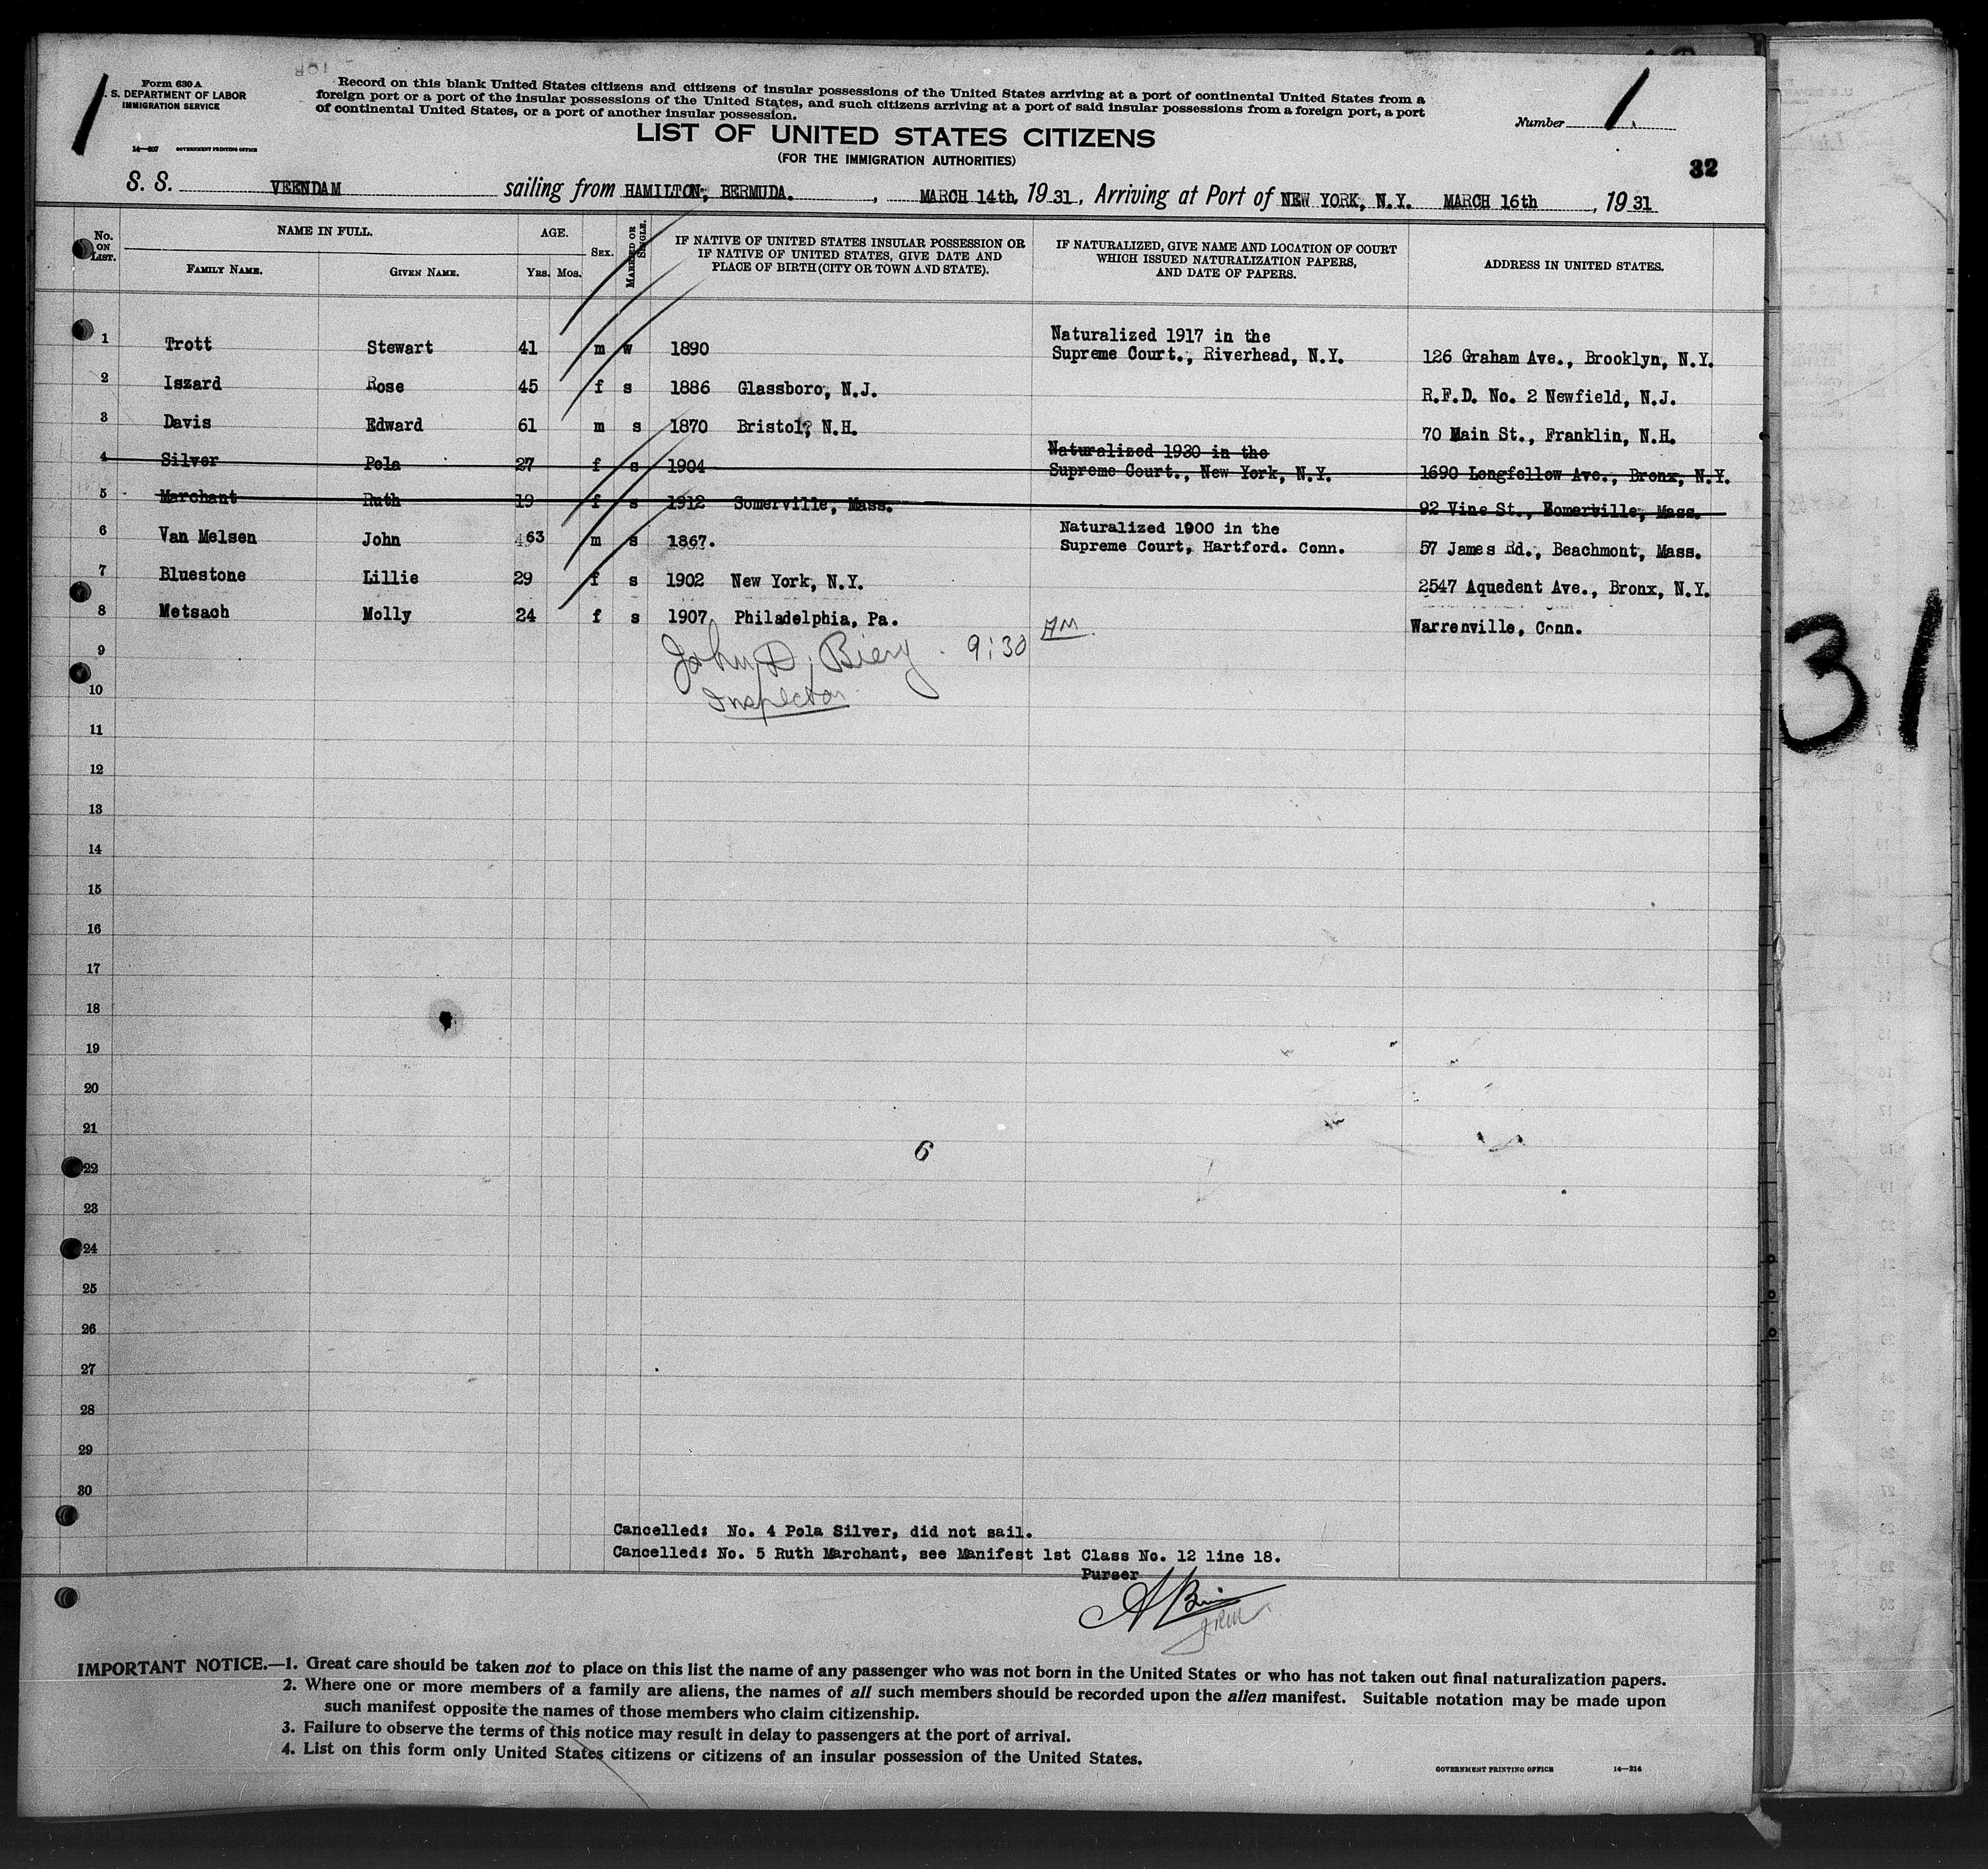 Form 630 A
S. DEPARTMENT OF LABOR
IMMIGRATION SERVICE
14—607 GOVERNMENT PRINTING OFFICE
Record on this blank United States citizens and citizens of insular possessions of the United States arriving at a port of continental United States from a
foreign port or a port of the insular possessions of the United States, and such citizens arriving at a port of said insular possessions from a foreign port, a port
of continental United States, or a port of another insular possession.
Number 1
LIST OF UNITED STATES CITIZENS
(FOR THE IMMIGRATION AUTHORITIES)
32
S. S. VEENDAM sailing from HAMILTON, BERMUDA. , MARCH 14th, 1931, Arriving at Port of NEW YORK, N.Y. MARCH 16th , 1931
No. ON LIST.
NAME IN FULL.
FAMILY NAME. GIVEN NAME.
AGE.
YRS. MOS.
SEX.
MARRIED OR SINGLE.
IF NATIVE OF UNITED STATES INSULAR POSSESSION OR
IF NATIVE OF UNITED STATES, GIVE DATE AND
PLACE OF BIRTH (CITY OR TOWN AND STATE).
IF NATURALIZED, GIVE NAME AND LOCATION OF COURT
WHICH ISSUED NATURALIZATION PAPERS,
AND DATE OF PAPERS.
ADDRESS IN UNITED STATES.
Naturalized 1917 in the
1 Trott Stewart 41 m w 1890 Supreme Court., Riverhead, N.Y. 126 Graham Ave., Brooklyn, N.Y.
2 Iszard Rose 45 f s 1886 Glassboro, N.J. R.F.D. No. 2 Newfield, N.J.
3 Davis Edward 61 m s 1870 Bristol, N.H. 70 Main St., Franklin, N.H.
Naturalized 1930 in the
4 Silver Pola 27 f s 1904 Supreme Court., New York, N.Y. 1690 Longfellow Ave., Bronx, N.Y.
5 Marchant Ruth 19 f s 1912 Somerville, Mass. 92 Vine St., Somerville, Mass.
Naturalized 1900 in the
6 Van Melsen John 63 m s 1867. Supreme Court, Hartford. Conn. 57 James Rd., Beachmont, Mass.
7 Bluestone Lillie 29 f s 1902 New York, N.Y. 2547 Aquedent Ave., Bronx, N.Y.
8 Metsach Molly 24 f s 1907 Philadelphia, Pa. Warrenville, Conn.
9 John D. Biery 9:30 AM
10 Inspector
11
12
13
14
15
16
17
18
19
20
21
6
22
23
24
25
26
27
28
29
30
31
Cancelled: No. 4 Pola Silver, did not sail.
Cancelled: No. 5 Ruth Marchant, see Manifest 1st Class No. 12 line 18.
Purser
IMPORTANT NOTICE.—1. Great care should be taken not to place on this list the name of any passenger who was not born in the United States or who has not taken out final naturalization papers.
2. Where one or more members of a family are aliens, the names of all such members should be recorded upon the alien manifest. Suitable notation may be made upon
such manifest opposite the names of those members who claim citizenship.
3. Failure to observe the terms of this notice may result in delay to passengers at the port of arrival.
4. List on this form only United States citizens or citizens of an insular possession of the United States.
GOVERNMENT PRINTING OFFICE 14—214